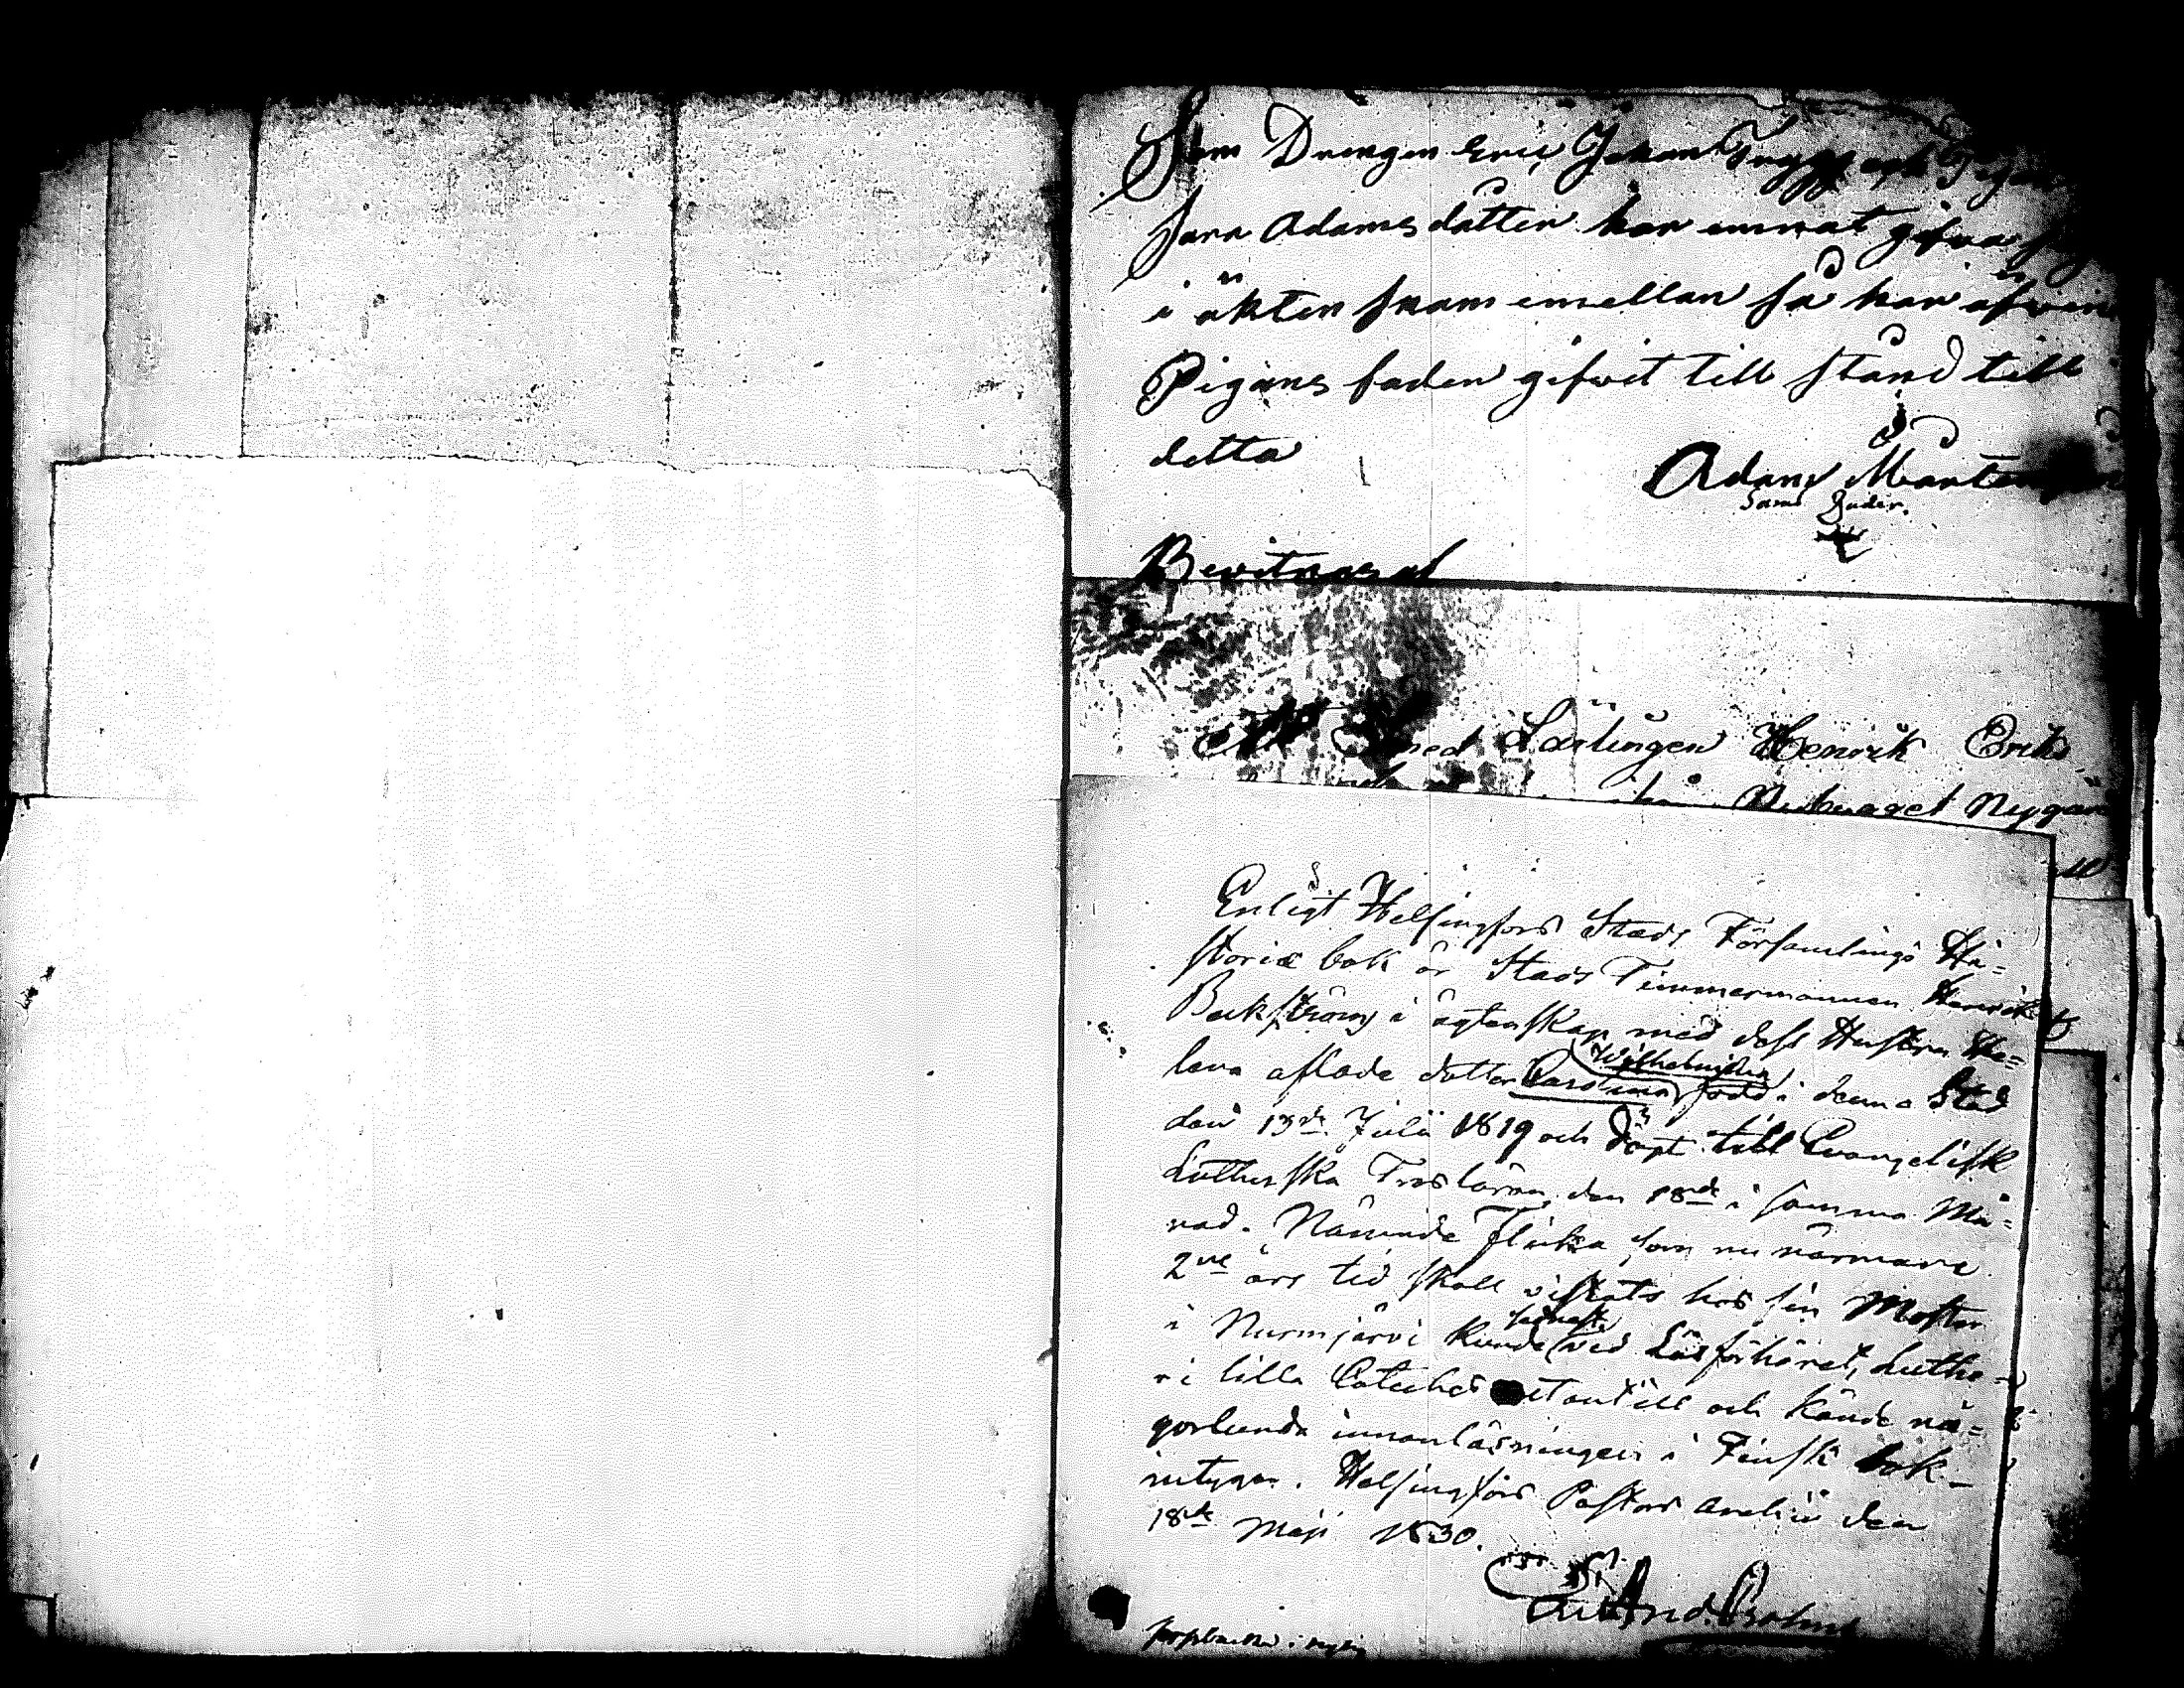 Som Drengen Eric Johan Trygg och Pigan
Sara Adams datter har ernat gifva sig
i äkten skam emellan så har
Pigans fader gifwit till stånd till
detta
Adam Mårtens
Saras Fader.
Bewitnas af
med Lärlingen Henrik Eriks
Enligt Helsingfors Stads Församlings Hi=
storiæ bok är Stads Timmermannen Henrik
Bekström i ägtenskap med dess Hustru He=
lena aflade dotter Carolina Wilhelmina född i denna Stad
den 13de Julii 1819 och döpt till Evangelisk
Lutherska Trosläran den 18nde i samma Må=
nad. Nämnde Flicka, som nu närmare
2ne års tid skall vistats hos sin Moster
i Nurmjärvi kunde senast wid Läsförhöret, Luthe=
ri lilla Cateches utantill och kände nå=
gorlunda innanläsningen i Finsk bok_
intygar. Helsingfors Pastors Ancelie den
18de Maji 1830.